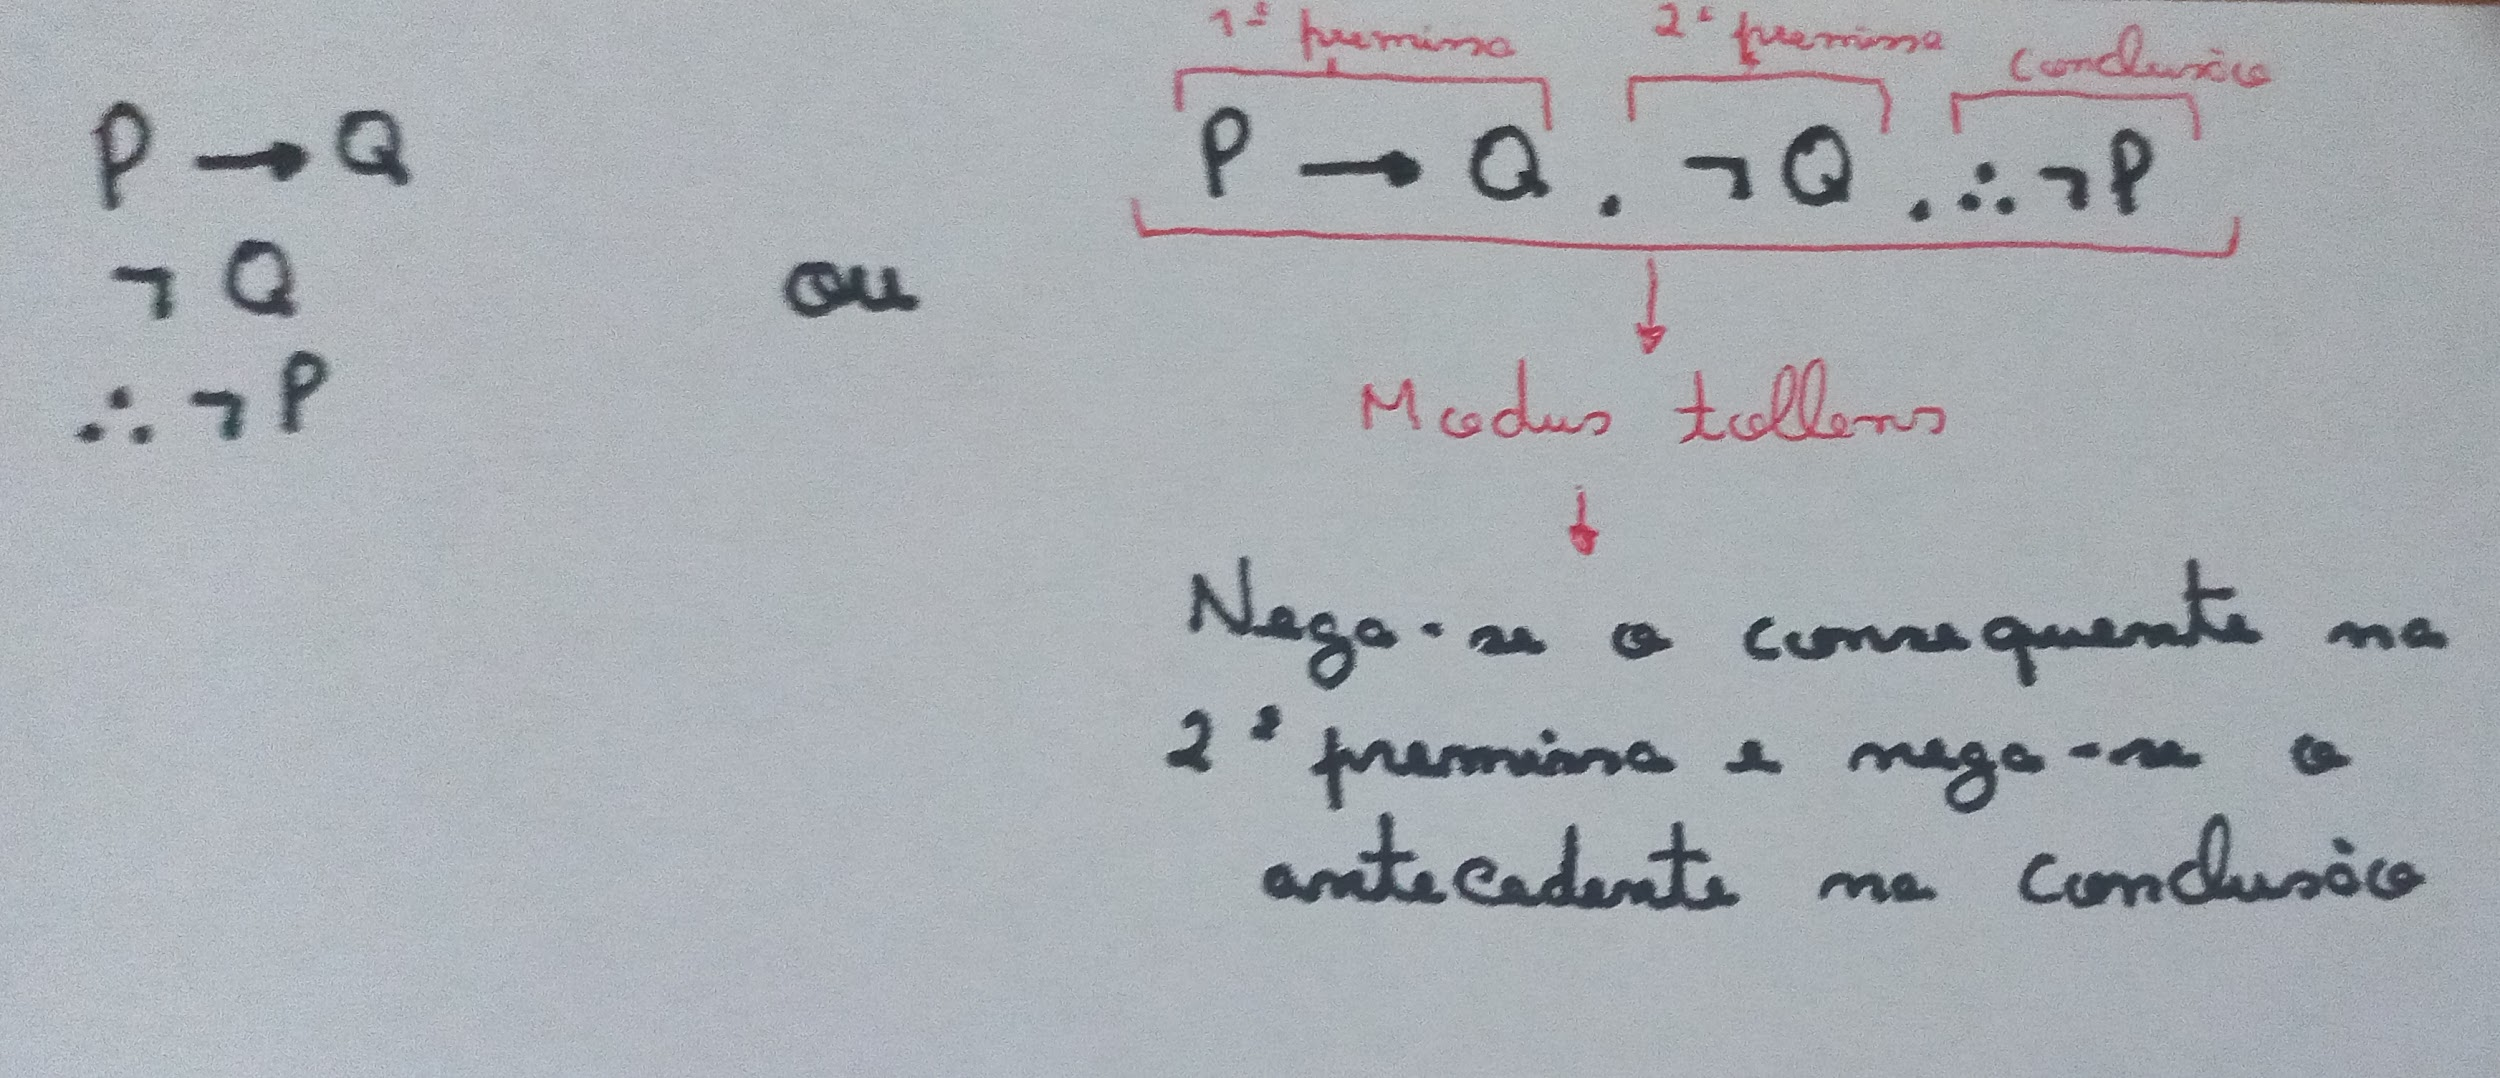 P → Q
¬ Q
∴ ¬ P
ou
1ª premissa 2ª premissa conclusão
P → Q . ¬ Q . ∴ ¬ P
Modus tollens
Nega-se o consequente na
2ª premissa e nega-se o
antecedente na conclusão